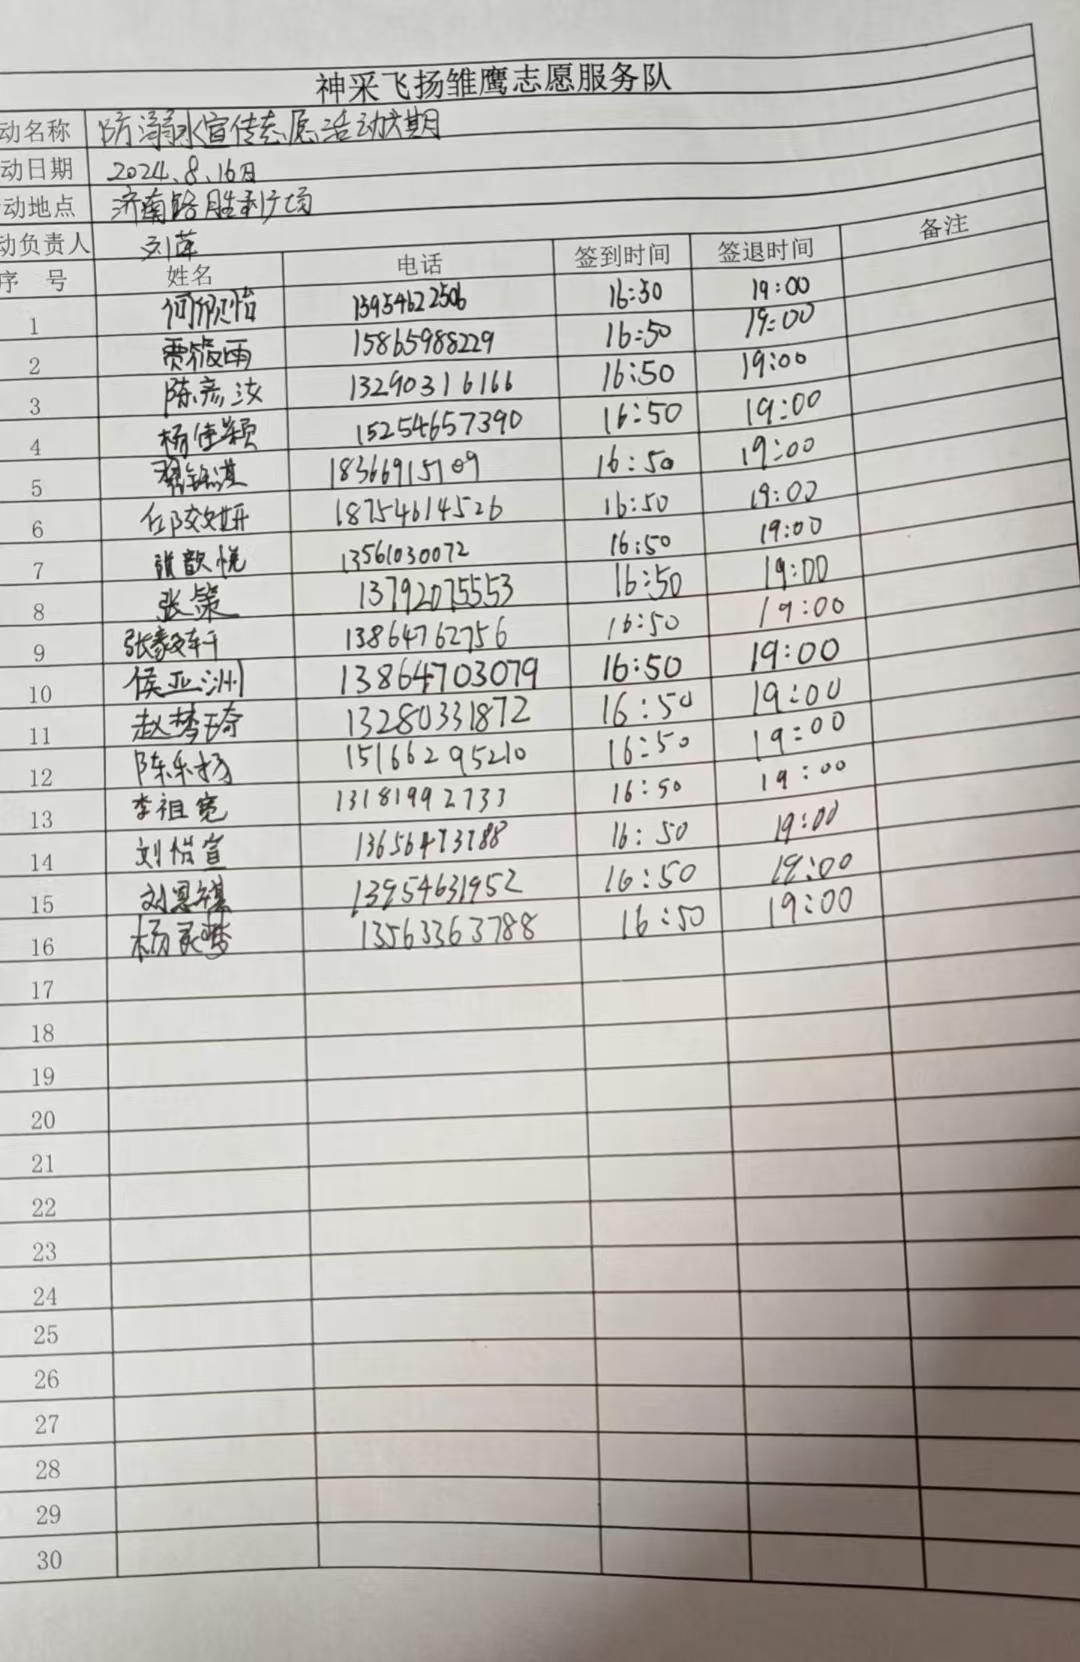 神采飞扬雏鹰志愿服务队
动名称 防溺水宣传志愿活动六期
动日期 2024.8.16日
动地点 济南路胜利广场
动负责人 刘萍
序号 姓名 电话 签到时间 签退时间 备注
1 何欣怡 13954622506 16:30 19:00
2 贾筱雨 15865988229 16:50 19:00
3 陈彦汝 13290316166 16:50 19:00
4 杨佳颖 15254657390 16:50 19:00
5 18366915109 16:50 19:00
6 任姣妍 18754614526 16:50 19:00
7 张歆悦 13561030072 16:50 19:00
8 张策 13792075553 16:50 19:00
9 张毅轩 13864762756 16:50 19:00
10 侯亚洲 13864703079 16:50 19:00
11 赵梦琦 13280331872 16:50 19:00
12 陈乐扬 15166295210 16:50 19:00
13 李祖宽 13181992733 16:50 19:00
14 刘怡宣 13656473788 16:50 19:00
15 刘恩祺 13954631952 16:50 19:00
16 杨灵梦 13563363788 16:50 19:00
17
18
19
20
21
22
23
24
25
26
27
28
29
30